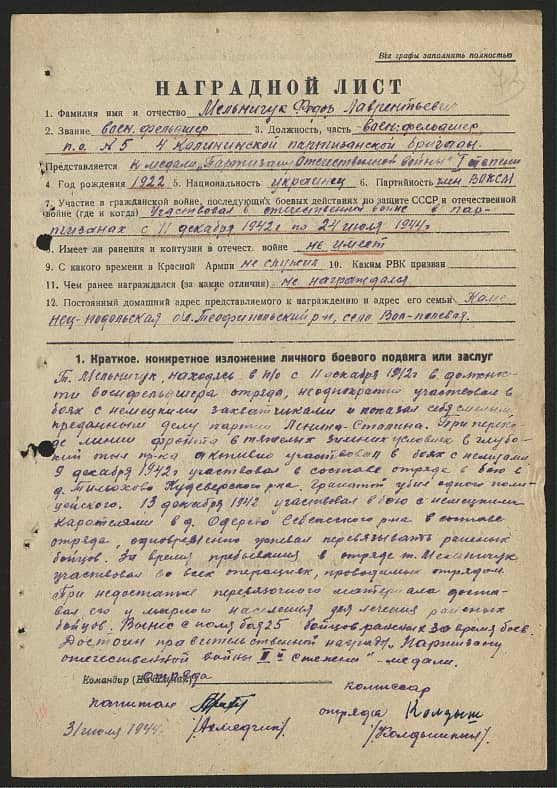 Все графы заполнить полностью
НАГРАДНОЙ ЛИСТ
1. Фамилия имя и отчество Мельничук Федор Лаврентьевич
2. Звание воен.фельдшер 3. Должность, часть воен.фельдшер
п.о. №5 4 Калининской партизанской бригады.
Представляется к медали „Партизану Отечественной войны" II степени
4. Год рождения 1922 5. Национальность украинец 6. Партийность член ВЛКСМ
7. Участие в гражданской войне, последующих боевых действиях по защите СССР и отечественной
войне (где и когда) Участвовал в отечественной войне в пар-
тизанах с 11 декабря 1942г по 24 июля 1944г
8. Имеет ли ранения и контузии в отечест. войне не имеет
9. С какого времени в Красной Армии не служил 10. Каким РВК призван
11. Чем ранее награждался (за какие отличия) не награждался
12. Постоянный домашний адрес представляемого к награждению и адрес его семьи Каме-
нец-подольская обл. Теофипольский р-н, село
1. Краткое, конкретное изложение личного боевого подвига или заслуг
Т. Мельничук, находясь в п/о с 11 декабря 1942г в должнос-
ти военфельдшера отряда, неоднократно участвовал в
боях с немецкими захватчиками и показал себя смелым,
преданным делу партии Ленина-Сталина. При перехо-
де линии фронта в тяжелых зимних условиях в глубо-
кий тыл пр-ка активно участвовал в боях с немцами
9 декабря 1942г участвовал в составе отряда в бою в
д. Кудеверского р-на. Гранатой убил одного поли-
цейского. 13 декабря 1942 участвовал в бою с немецкими
карателями в д. Себежского р-на в составе
отряда, одновременно успевал перевязывать раненых
бойцов. За время пребывания в отряде т. Мельничук
участвовал во всех операциях, проводимых отрядом.
При недостатке перевязочного материала доста-
вал его у мирного населения для лечения раненых
бойцов. Вынес с поля боя 25 бойцов раненых за время боев.
Достоин правительственной награды „Партизану
отечественной войны II й степени" - медали.
Командир (Начальник) отряда
комиссар
капитан отряда
31 июля 1944г.